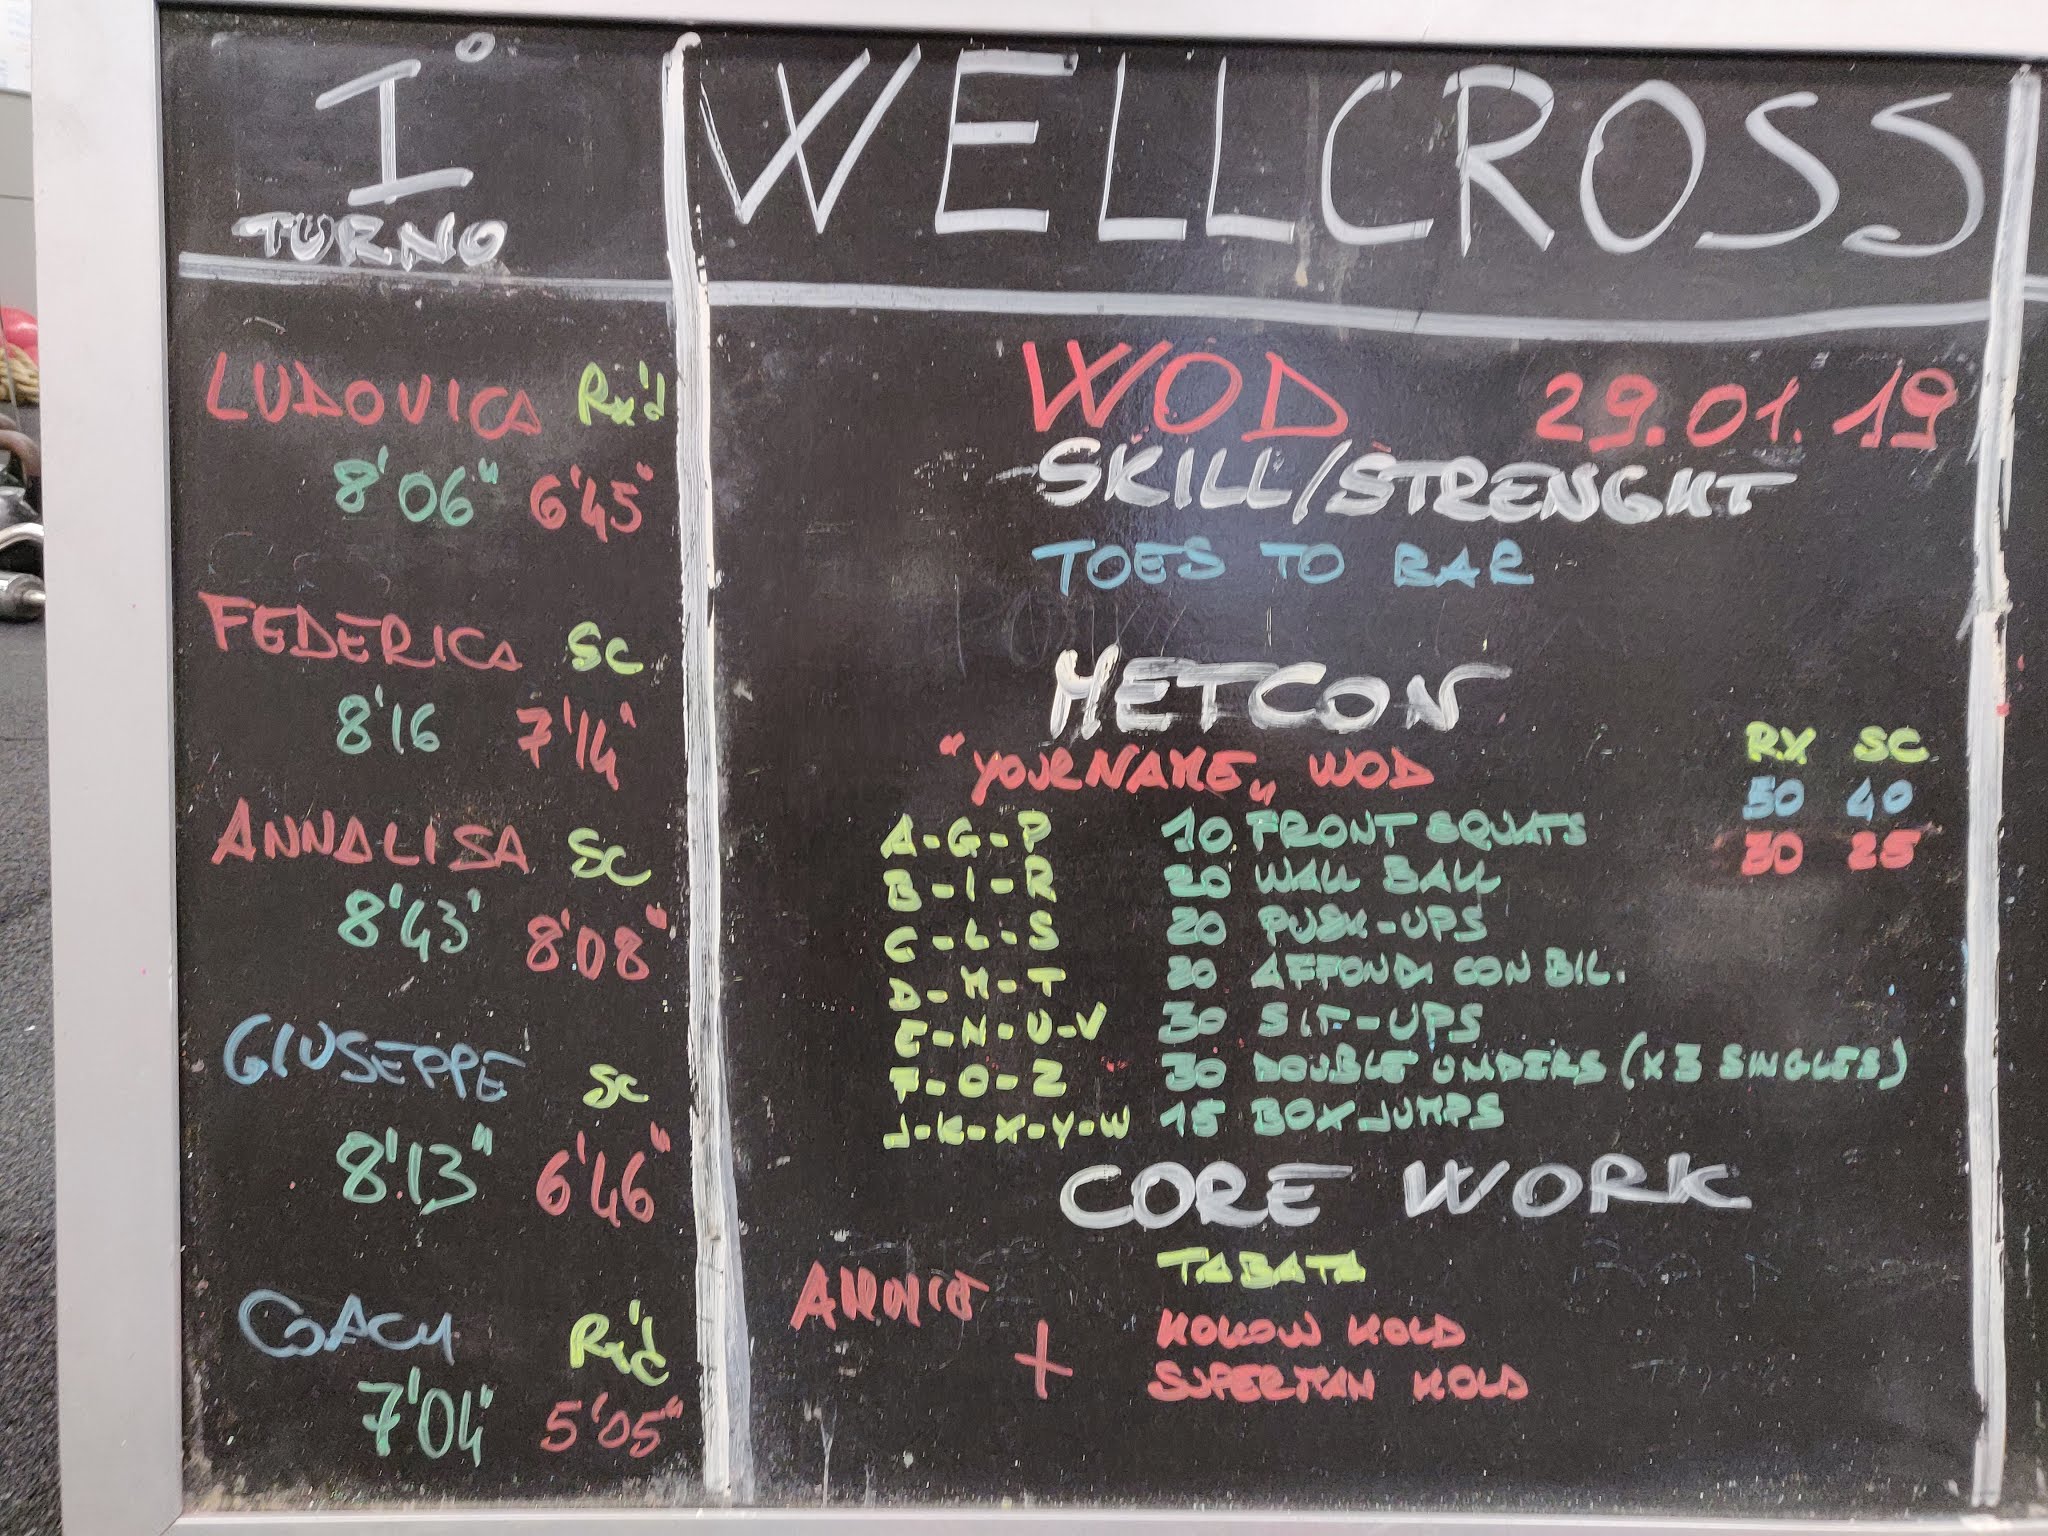 I°
TURNO
LUDOVICA Rx'd
8'06" 6'45"
FEDERICA SC
8'16 7'14"
ANNALISA SC
8'43' 8'08"
GIUSEPPE SC
8'13" 6'46"
COACH Rx'd
7'04" 5'05"
WELLCROSS
WOD 29.01.19
SKILL/STRENGHT
TOES TO BAR
METCON
"YOUR NAME„ WOD
RX SC
50 40
30 25
A-G-P 10 FRONT SQUATS
B-I-R 20 WALL BALL
C-L-S 20 PUSH-UPS
D-M-T 20 AFFONDI CON BIL.
E-N-U-V 30 SIT-UPS
F-O-Z 30 DOUBLE UNDERS (X3 SINGLES)
J-K-X-Y-W 15 BOX JUMPS
CORE WORK
TABATA
ANNIE
+
HOLLOW HOLD
SUPERMAN HOLD